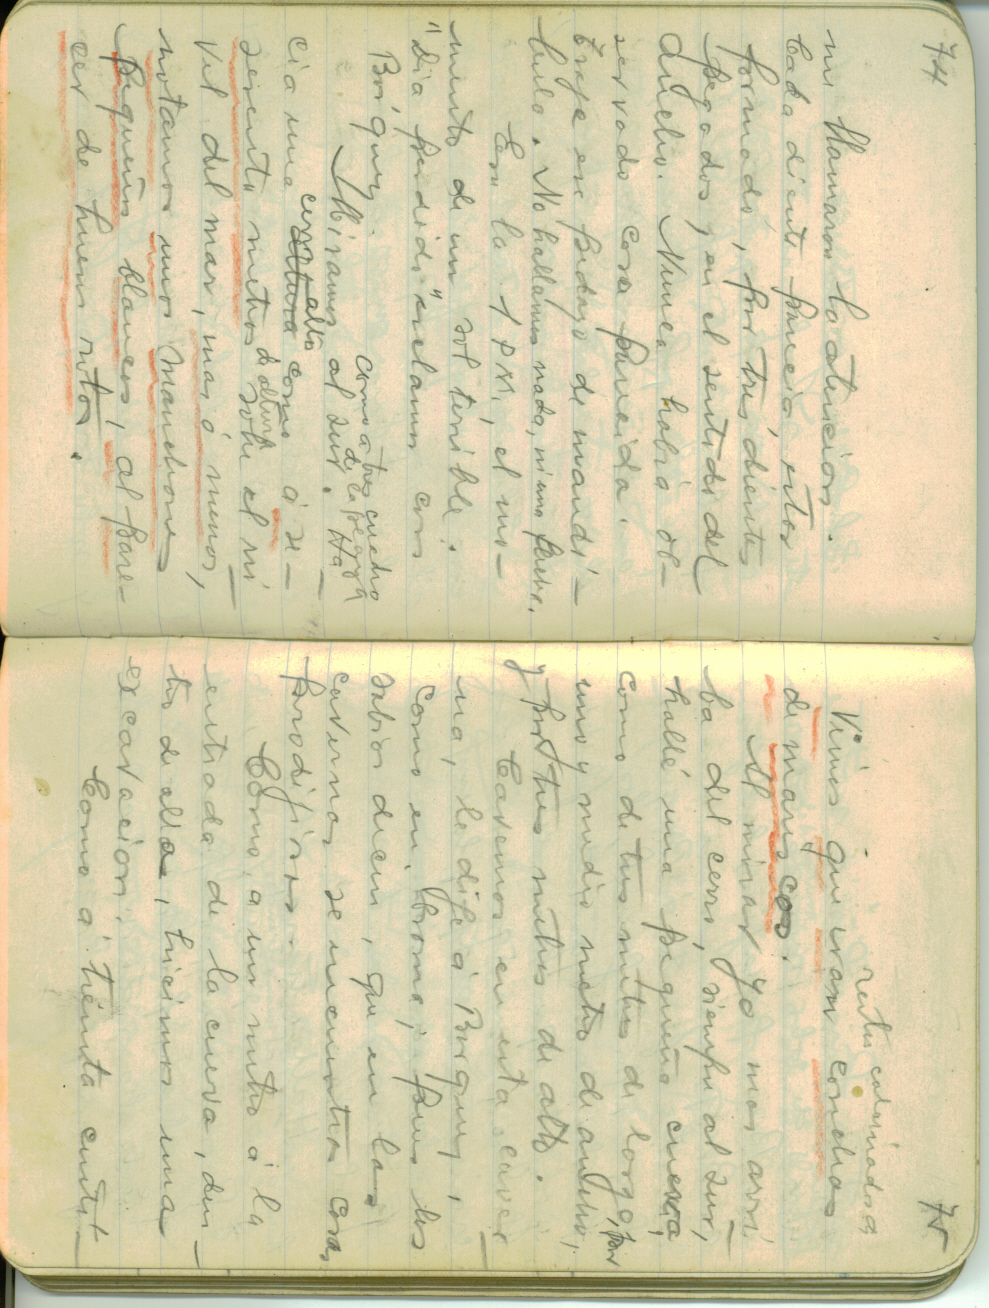 74
mi llamaron la atención.
Cada diente parecía, estar
formado, por tres dientes
pegados y en el sentido del
ancho. Nunca había ob-
servado cosa parecida.
Traje ese pedazo de mandí-
bula. No hallamos nada, ni una piedra.
Era la 1 P.M., el mo-
mento de un sol terrible.
"Dia perdido" exclamé con
Bórquez.
como a tres cuadros
de la pegaza
Miramos al sur. Ha-
cía una cerro alto como á se-
senta metros de altura sobre el ni-
vel del mar, mas ó menos,
notamos unos manchones
pequeños blancos, al pare-
cer de huesos rotos.
75
restos calcinados
Vimos que eran conchas
de mariscos.
Al mirar yo mas arri-
ba del cerro, siempre al sur,
hallé una pequeña cueva,
como de tres metros de largo, por
uno y medio metro de ancho,
y por tres metros de alto.
Cavemos en esta caver-
na, le dije á Borquez,
como en broma; pues los
sabios decían, que en las
cavernas se encuentras cosas
prodijiosas.
Como a un metro á la
entrada de la cueva, den-
tro de ella, hicimos una
excavación.
Como á treinta centí-